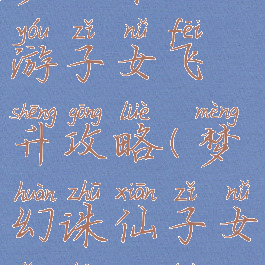 yóu zǐ nǚ fēi
游子女飞
shēng gōng lüè mèng
升攻略(梦
huàn zhū xiān zǐ nǚ
幻诛仙子女